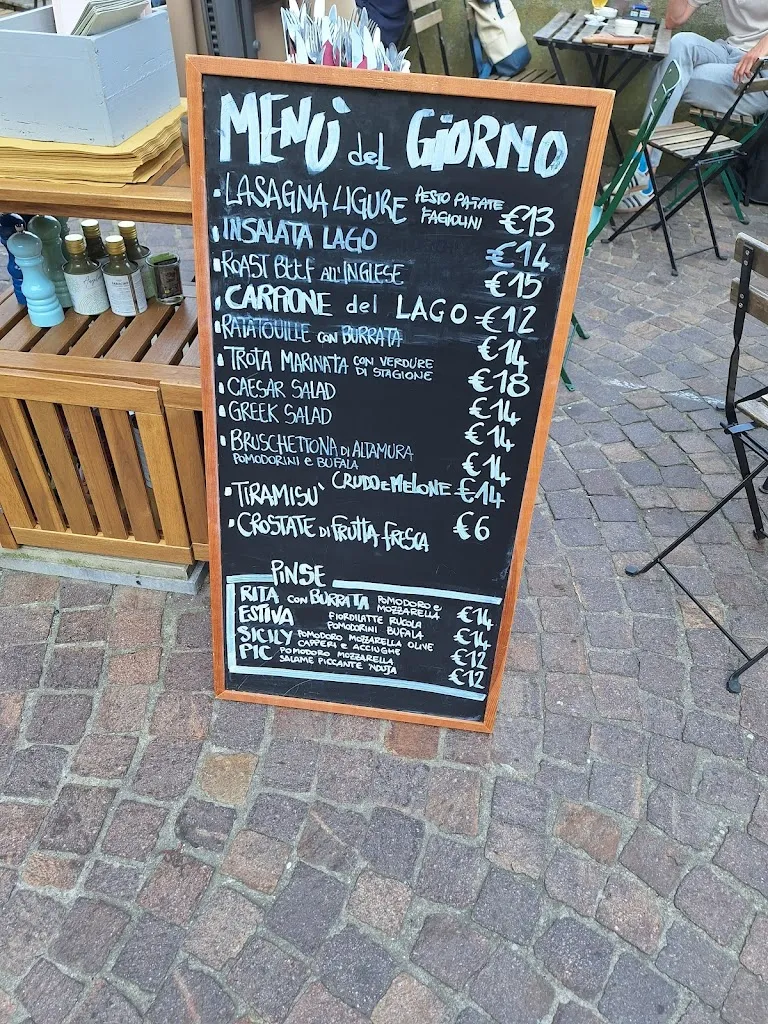 MENÙ del GIORNO
• LASAGNA LIGURE PESTO PATATE FAGIOLINI €13
• INSALATA LAGO €14
• ROAST BEEF ALL'INGLESE €15
• CARPIONE del LAGO €12
• RATATOUILLE CON BURRATA €14
• TROTA MARINATA CON VERDURE DI STAGIONE €18
• CAESAR SALAD €14
• GREEK SALAD €14
• BRUSCHETTONA DI ALTAMURA €14
POMODORINI e BUFALA
CRUDO e MELONE €14
• TIRAMISU'
• CROSTATE DI FRUTTA FRESCA €6
PINSE
RITA CON BURRATA POMODORO e MOZZARELLA €14
ESTIVA FIORDILATTE RUCOLA POMODORINI BUFALA €14
SICILY POMODORO MOZZARELLA OLIVE CAPPERI e ACCIUGHE €12
PIC POMODORO MOZZARELLA SALAME PICCANTE 'NDUJA €12